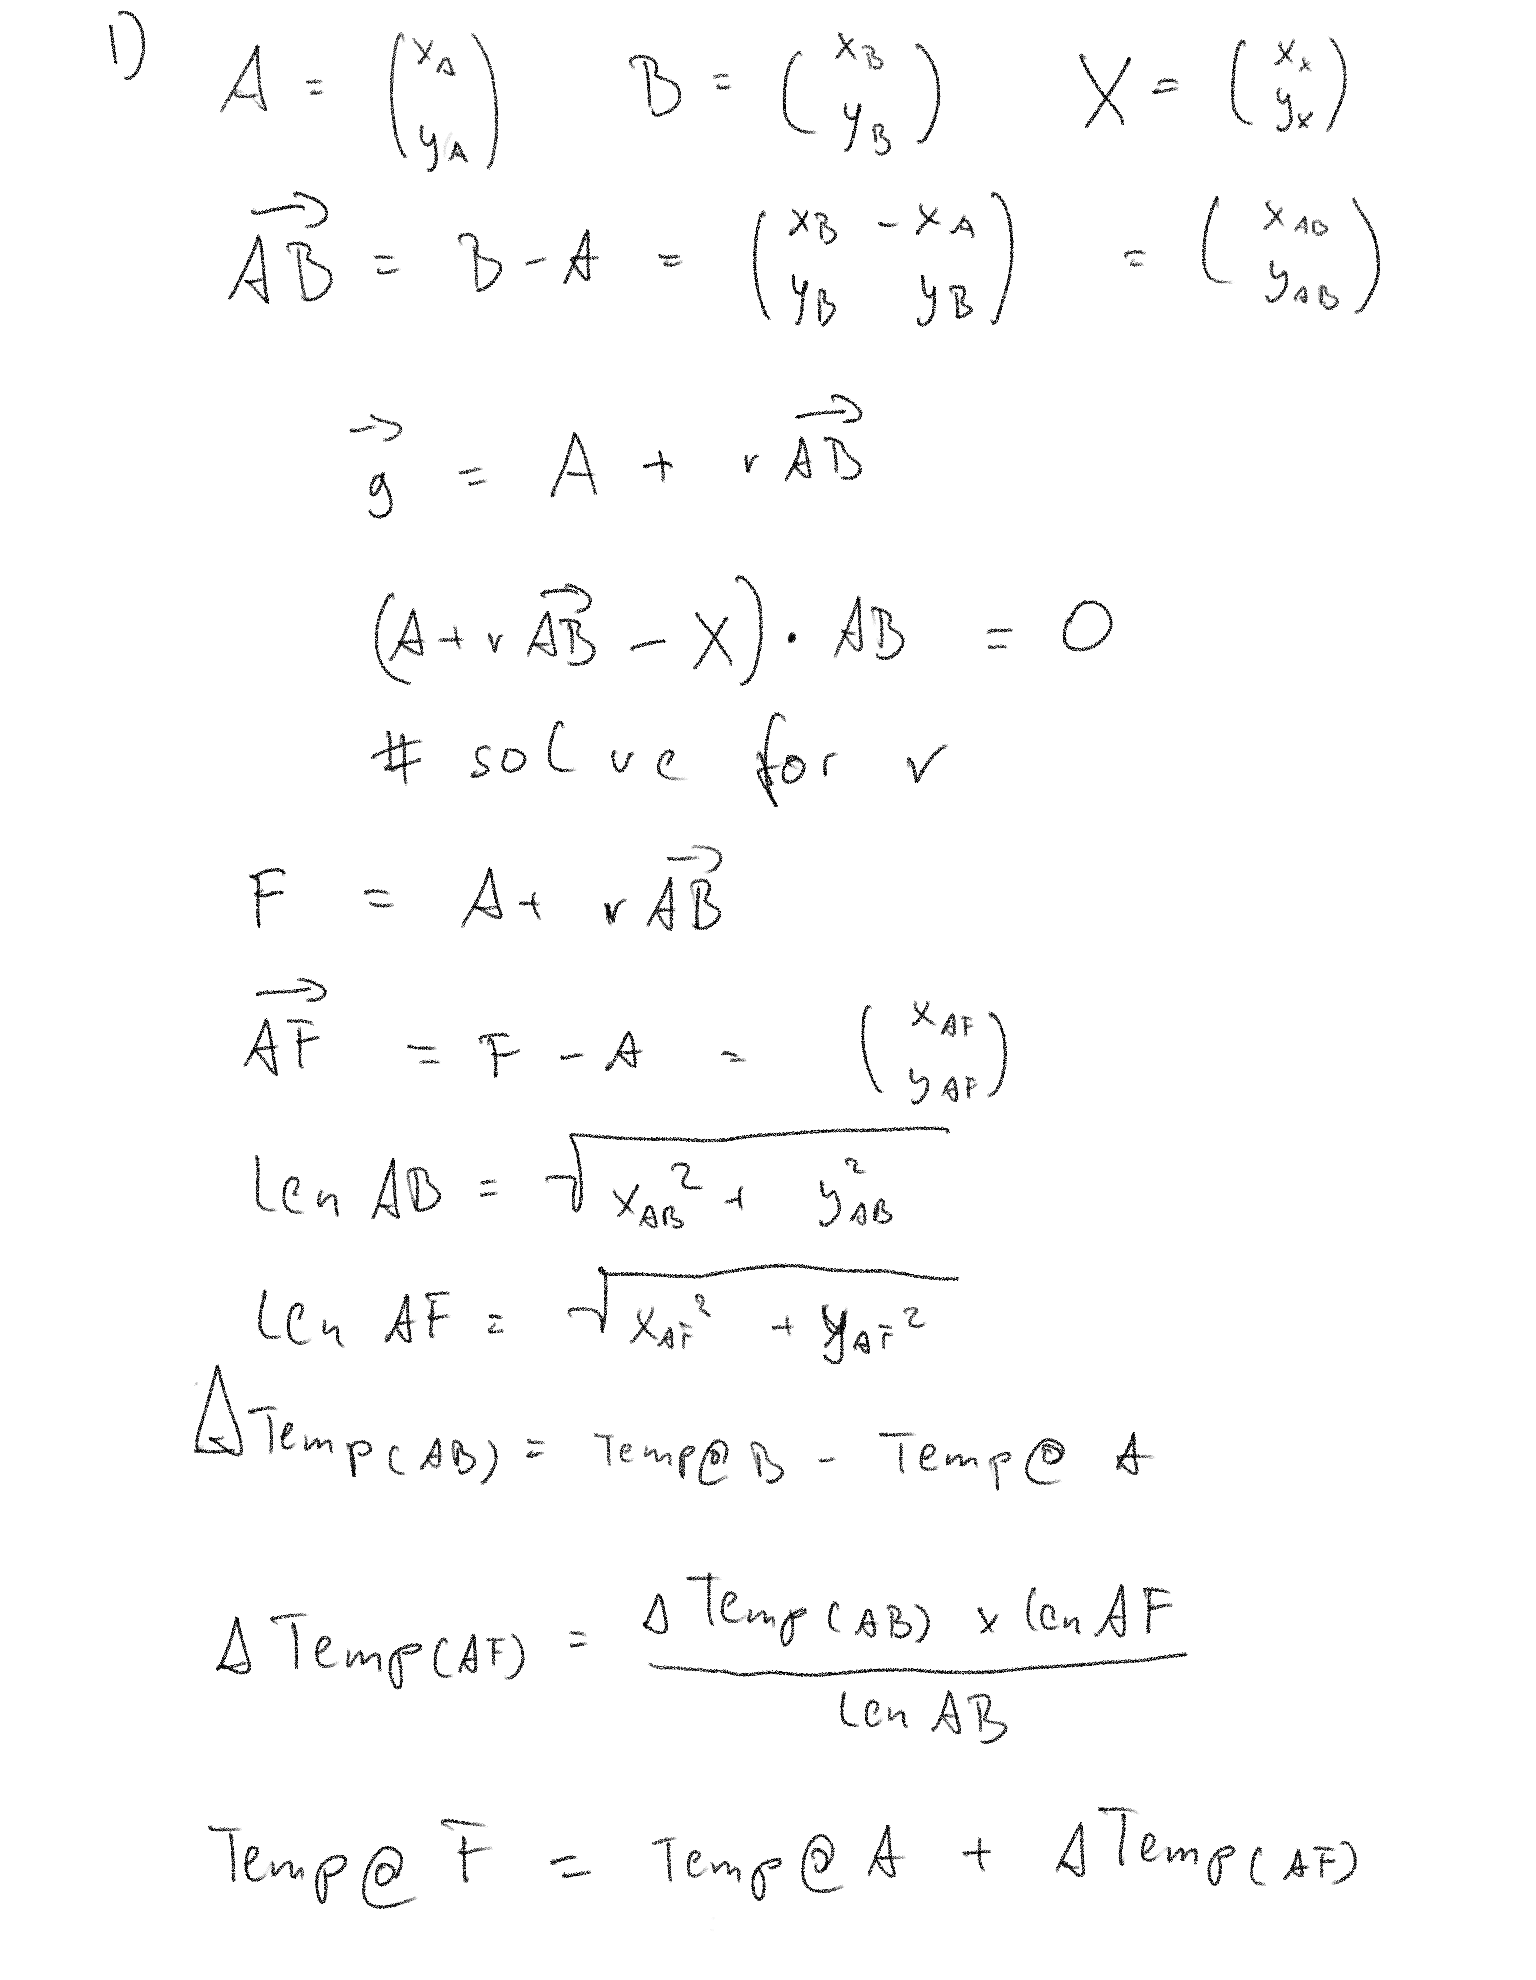 1) A = (x_A y_A) B = (x_B y_B) X = (x_x y_x)
→AB = B - A = (x_B - x_A y_B y_B) = (x_AB y_AB)
→g = A + r →AB
(A + r →AB - X) · AB = 0
# solve for r
F = A + r →AB
→AF = F - A = (x_AF y_AF)
len AB = √(x_AB² + y_AB²)
len AF = √(x_AF² + y_AF²)
Δ Temp(AB) = Temp@B - Temp@A
Δ Temp(AF) = Δ Temp(AB) x len AF / len AB
Temp@F = Temp@A + Δ Temp(AF)